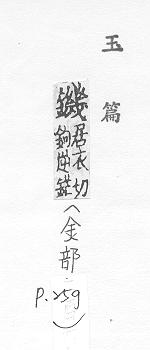 玉篇
鐖 居衣切
鉤逆鋩
(金部.
P.259)